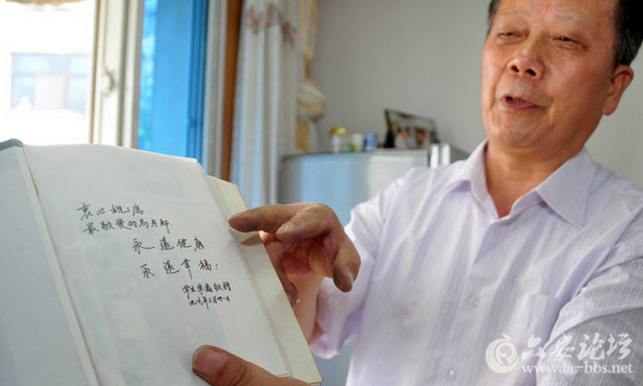 衷心祝愿
最敬爱的马老师
永远健康
永远幸福！
六安论坛
www.la-bbs.net